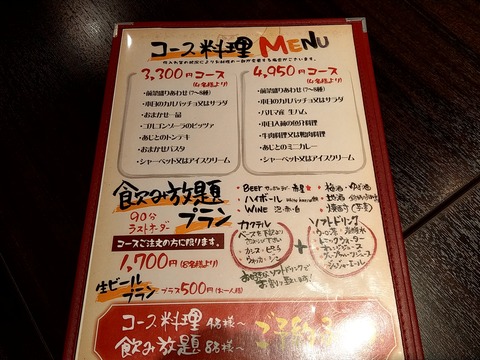 コース料理 MENU
3,300円コース
(4名様より)
・前菜盛りあわせ(7〜8種)
・本日のカルパッチョ又はサラダ
・おまかせ一品
・ゴルゴンゾーラのピッツァ
・あじとのトンテキ
・おまかせパスタ
・シャーベット又はアイスクリーム
4,950円コース
(4名様より)
・前菜盛りあわせ(7〜8種)
・本日のカルパッチョ又はサラダ
・パルマ産 生ハム
・本日入荷の魚介料理
・牛肉料理又は鴨肉料理
・あじとのミニカレー
・シャーベット又はアイスクリーム
飲み放題
プラン
90分
ラストオーダー
コースご注文の方に限ります。
1,700円(8名様より)
生ビール
プラン プラス500円(お一人様)
・BEER
・ハイボール
・WINE 泡・赤・白
・梅酒・ゆず酒
カクテル
ベースを下記より
カシス・ピーチ
ウォッカ・ジン
+
ソフトドリンク
ウーロン茶
ジンジャーエール
コース料理 4名様〜
飲み放題 8名様〜